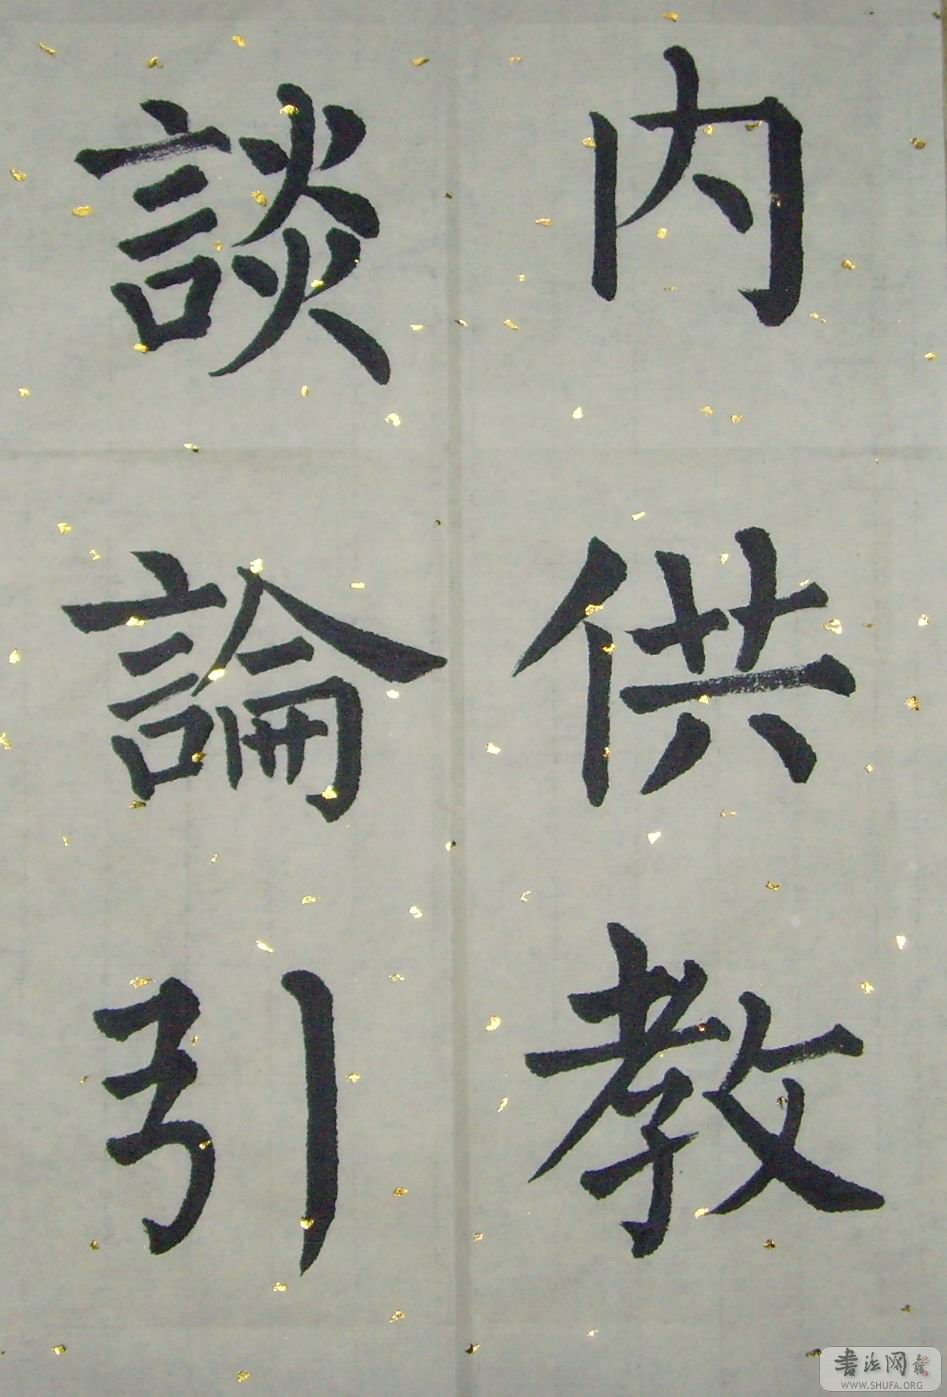 内供教
談論引
書法网
WWW.SHUFA.ORG